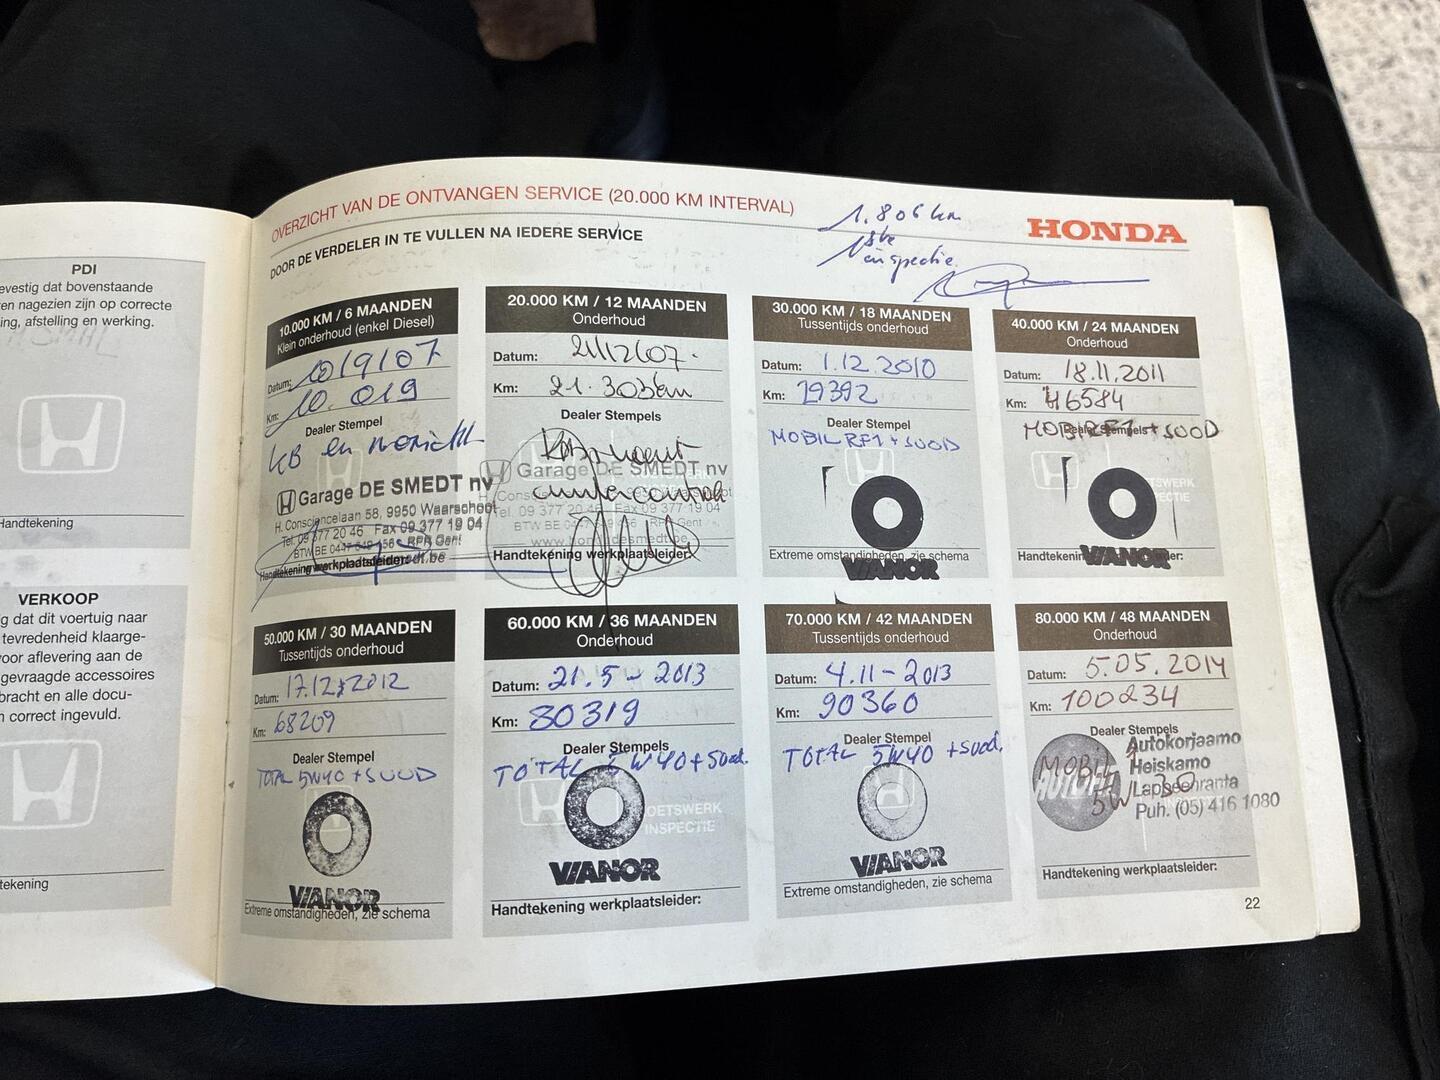 PDI
evestig dat bovenstaande
ren nagezien zijn op correcte
ing, afstelling en werking.
Handtekening
VERKOOP
g dat dit voertuig naar
tevredenheid klaarge-
voor aflevering aan de
gevraagde accessoires
bracht en alle docu-
n correct ingevuld.
tekening
OVERZICHT VAN DE ONTVANGEN SERVICE (20.000 KM INTERVAL)
DOOR DE VERDELER IN TE VULLEN NA IEDERE SERVICE
1.806 km
1ste
inspectie
HONDA
10.000 KM / 6 MAANDEN
Klein onderhoud (enkel Diesel)
Datum: 10/9/07
Km: 10.019
Dealer Stempel
KB en
Garage DE SMEDT nv
H. Consciencelaan 58, 9950 Waarschoot
Tel. 09 377 20 46 Fax 09 377 19 04
RPR Gent
Handtekening werkplaatsleider:
20.000 KM / 12 MAANDEN
Onderhoud
Datum: 21/12/07.
Km: 21.303km
Dealer Stempels
Garage DE SMEDT nv
Tel. 09 377 20 46 Fax 09 377 19 04
RPR Gent
Handtekening werkplaatsleider:
30.000 KM / 18 MAANDEN
Tussentijds onderhoud
Datum: 1.12.2010
Km: 29392
Dealer Stempel
MOBIL RF1 + SUOD
Extreme omstandigheden, zie schema
VIANOR
40.000 KM / 24 MAANDEN
Onderhoud
Datum: 18.11.2011
Km: 46584
Dealer Stempels
MOBIL RF1 + SUOD
Handtekening werkplaatsleider:
VIANOR
50.000 KM / 30 MAANDEN
Tussentijds onderhoud
Datum: 17.12.2012
Km: 68209
Dealer Stempel
TOTAL 5W40 + SUOD
VIANOR
Extreme omstandigheden, zie schema
60.000 KM / 36 MAANDEN
Onderhoud
Datum: 21.5-2013
Km: 80319
Dealer Stempels
TOTAL 5W40 + Suod.
KOETSWERK
INSPECTIE
VIANOR
Handtekening werkplaatsleider:
70.000 KM / 42 MAANDEN
Tussentijds onderhoud
Datum: 4.11-2013
Km: 90360
Dealer Stempel
TOTAL 5W40 + suod.
VIANOR
Extreme omstandigheden, zie schema
80.000 KM / 48 MAANDEN
Onderhoud
Datum: 5.05.2014
Km: 100234
Dealer Stempels
MOBIL 1
5W30
Autokorjaamo
Heiskamo
Lappeenranta
Puh. (05) 416 1080
Handtekening werkplaatsleider:
22